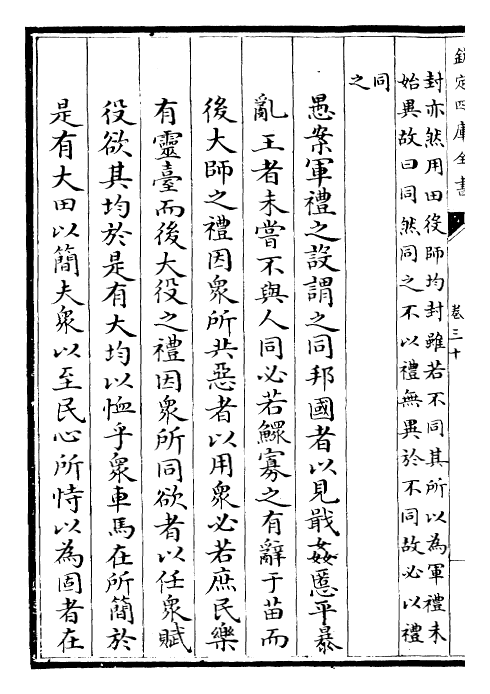 欽定四庫全書
卷三十
封亦然用田役師均封雖若不同其所以為軍禮未
始異故曰同然同之不以禮無異於不同故必以禮
同
之
愚案軍禮之設謂之同邦國者以見戢姦慝平暴
亂王者未嘗不與人同必若鰥寡之有辭于苗而
後大師之禮因衆所共惡者以用衆必若庶民樂
有靈臺而後大役之禮因衆所同欲者以任衆賦
役欲其均於是有大均以恤乎衆車馬在所簡於
是有大田以簡夫衆以至民心所恃以為固者在